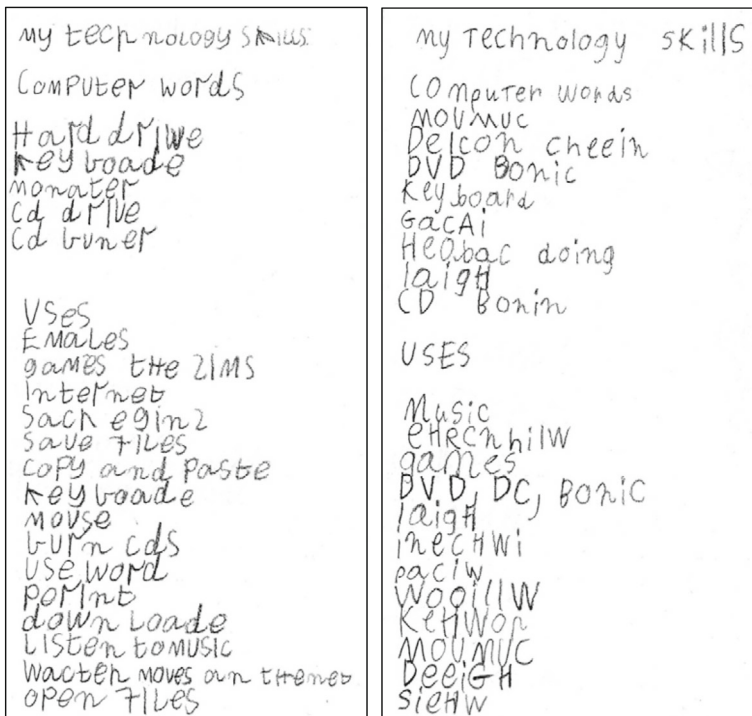 My technology skills
Computer words
Hard driwe
Key boade
monater
Cd drive
Cd buner
Uses
Emales
games the zims
Internet
Sach eginz
Save files
Copy and paste
Key boade
mouse
burn cds
use word
porint
down loade
Listen to music
wacteh moves on thenet
open files
My Technology skills
Computer words
MOUMUC
Delcon cheein
DVD Bonic
Keyboard
GacAi
HeObac doing
laigH
CD Bonin
USES
Music
eHRCnhilW
games
DVD, DC, BoniC
laigH
inecHWi
paciw
WooillW
KeHWon
MOUMUC
DeeiGH
sieHW